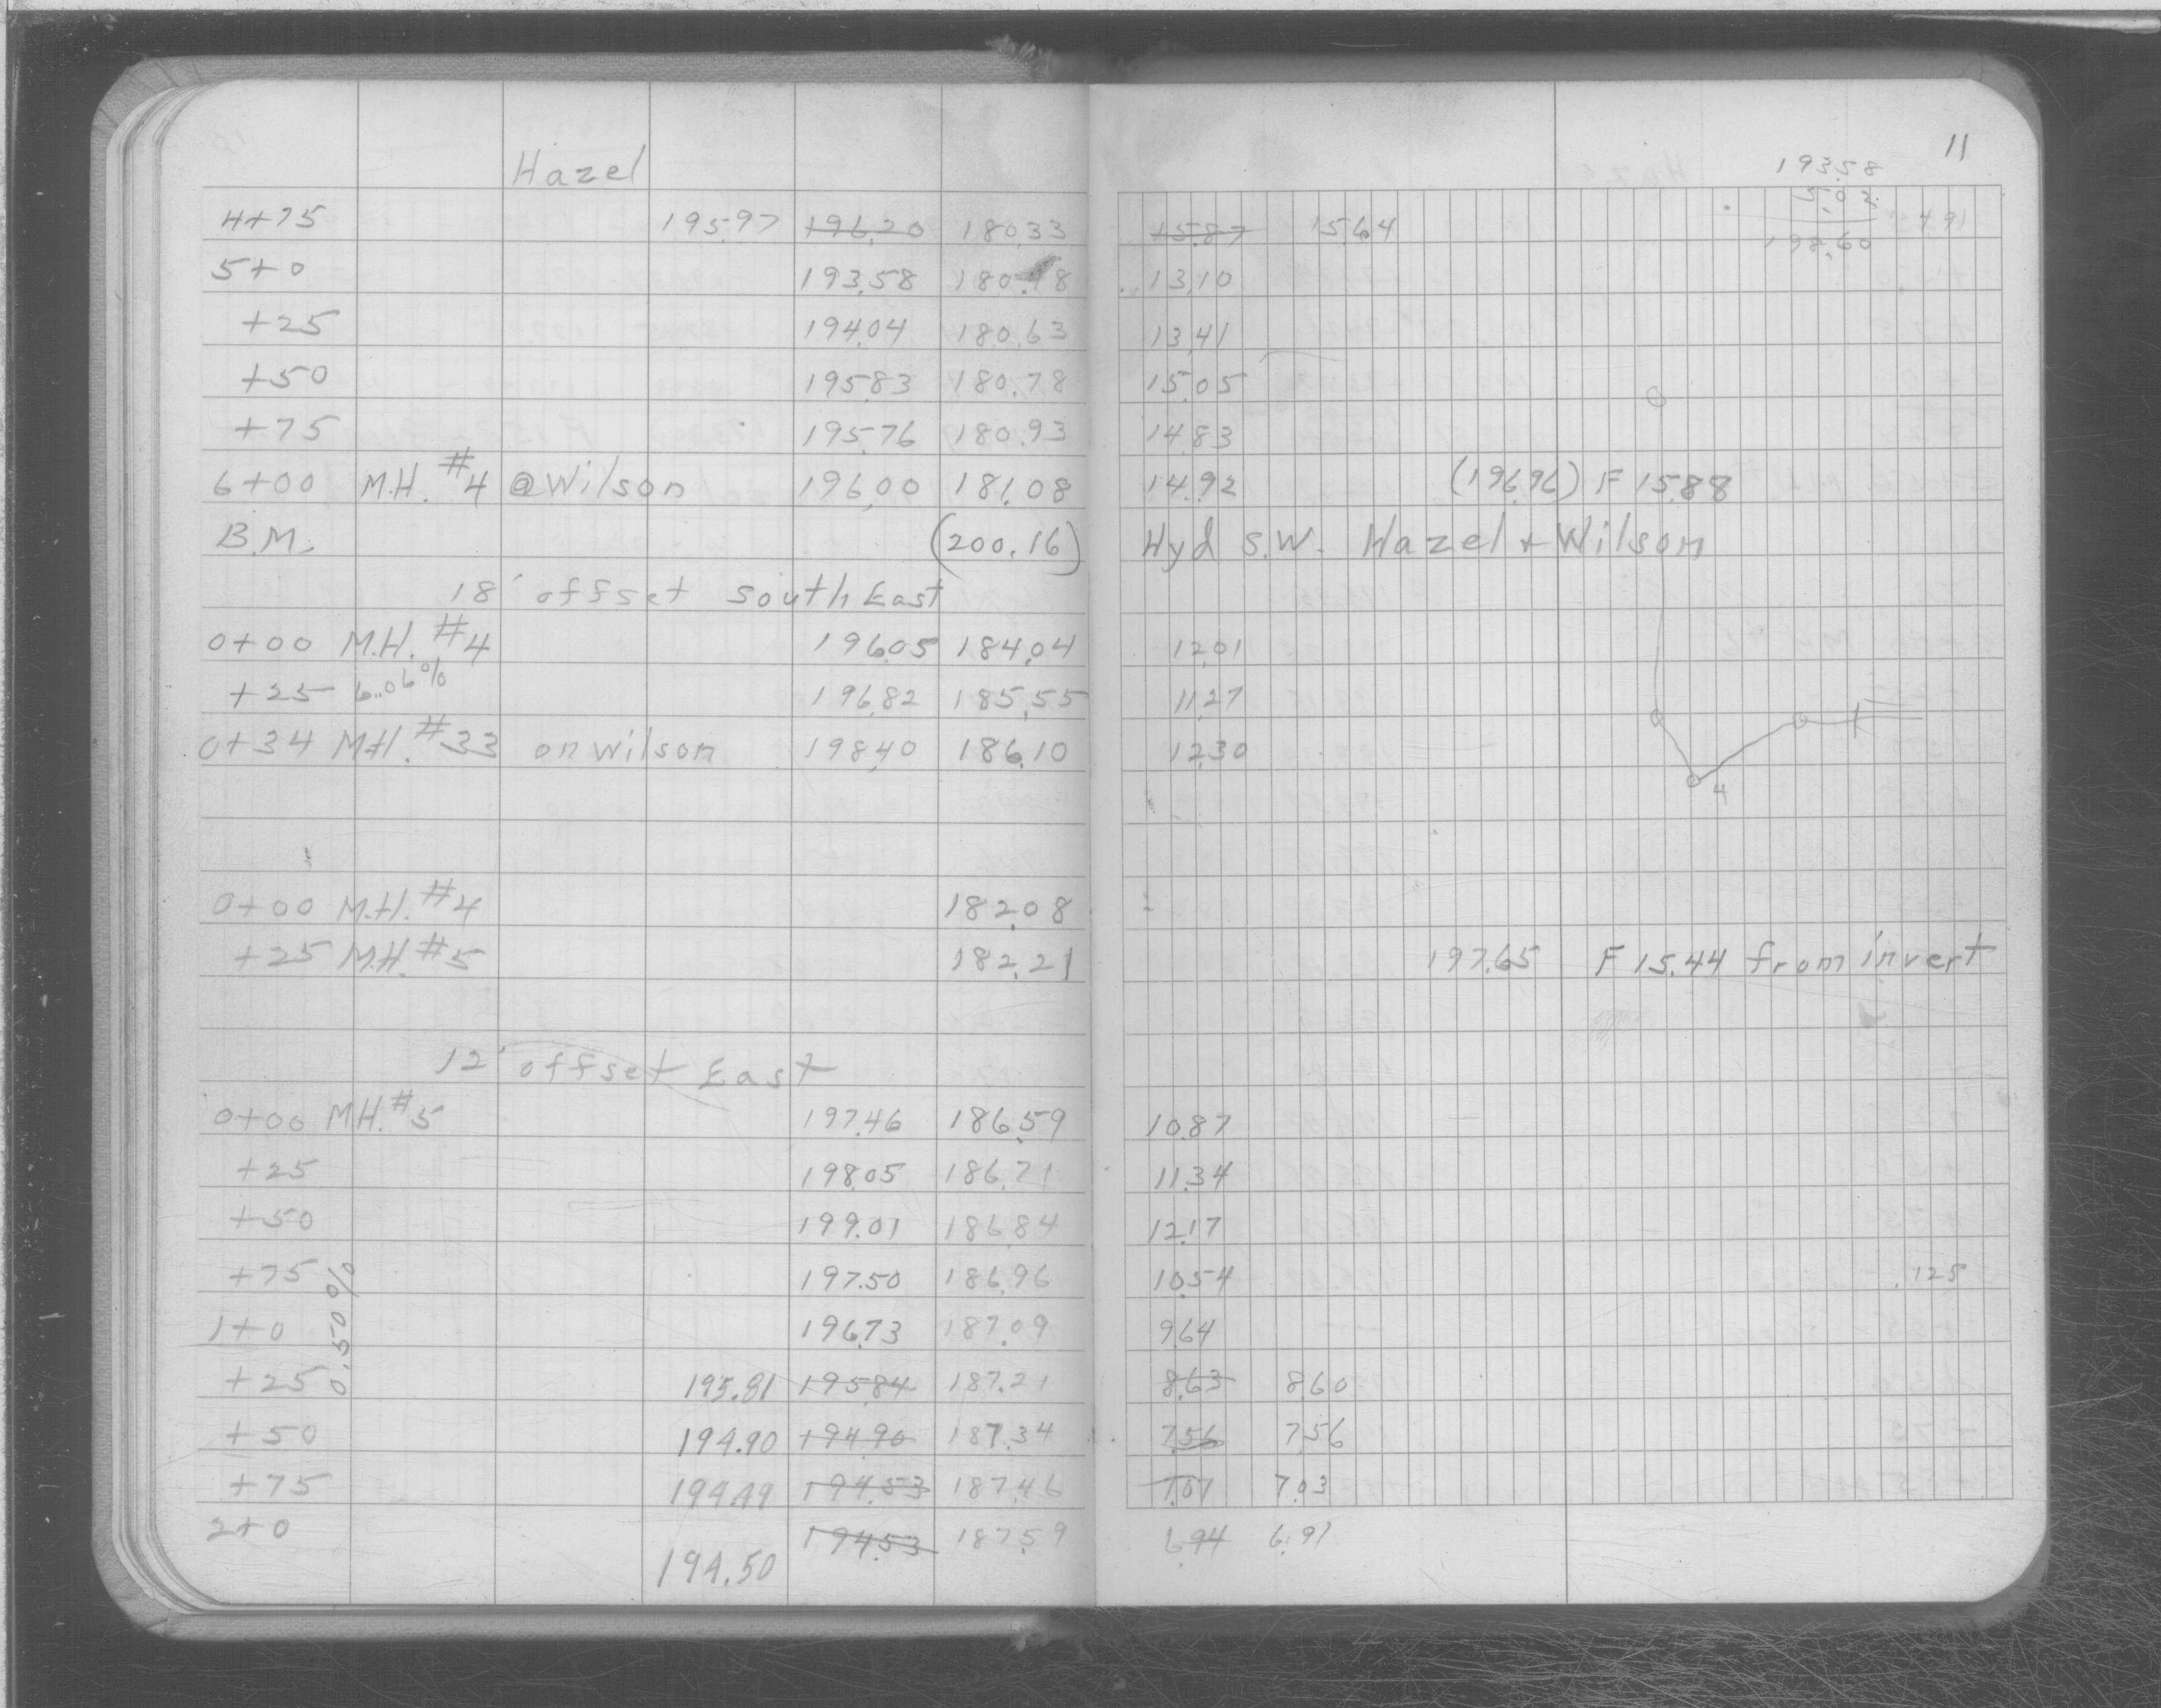 11
193.58
5.02
198.60
4.91
Hazel
4+75 195.97 196.20 180.33 15.87 15.64
5+0 193.58 180.48 13.10
+25 194.04 180.63 13.41
+50 195.83 180.78 15.05
+75 195.76 180.93 14.83
6+00 M.H. #4 @ Wilson 196.00 181.08 14.92 (196.96) F 15.88
B.M. (200.16) Hyd S.W. Hazel + Wilson
18' offset South East
0+00 M.H. #4 196.05 184.04 12.01
+25 6.06% 196.82 185.55 11.27
0+34 M.H. #33 on Wilson 198.40 186.10 12.30
4
0+00 M.H. #4 182.08
+25 M.H. #5 182.21 197.65 F 15.44 from invert
12' offset East
0+00 M.H. #5 197.46 186.59 10.87
+25 198.05 186.71 11.34
+50 199.01 186.84 12.17
+75 197.50 186.96 10.54 .125
0.50%
1+0 196.73 187.09 9.64
+25 195.81 195.84 187.21 8.63 8.60
+50 194.90 194.90 187.34 7.56 7.56
+75 194.49 194.53 187.46 7.07 7.03
2+0 194.50 194.53 187.59 6.94 6.91